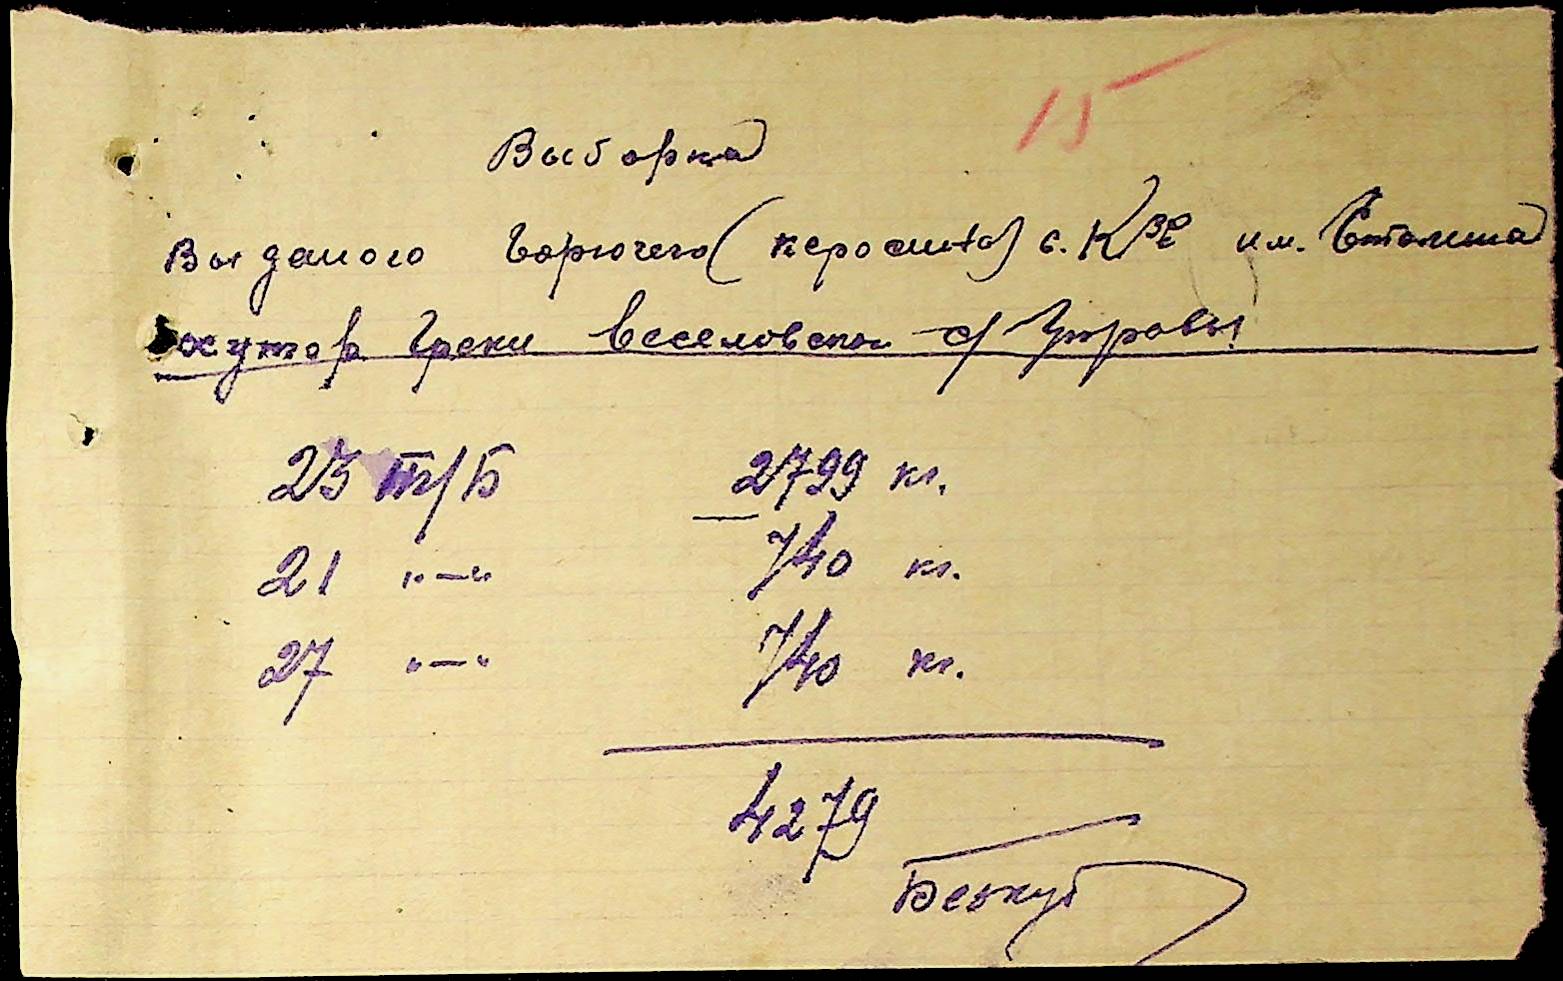 15
Выборка
Выданого Горючего (керосина) с. К им. Сталина
хутор Греки Веселовской с/Управы
23 тг/Б 2799 кг.
21 "—" 740 кг.
27 "—" 740 кг.
4279